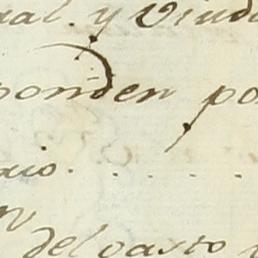 ual. y Viud
ponden po
uio. . . . . .
del gasto